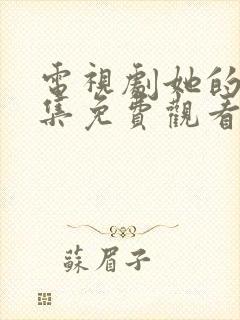 電視劇她的
集免費觀看
蘇眉子